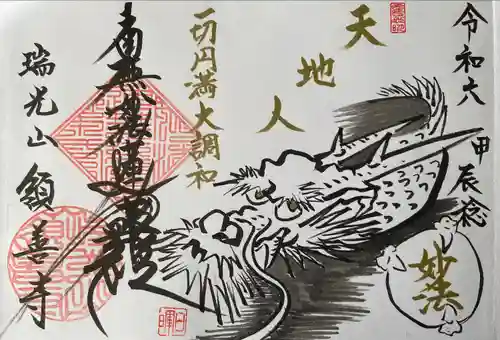 令和六甲辰稔
天地人
妙法
一切円満大調和
南無妙法蓮華経
瑞光山 領善寺